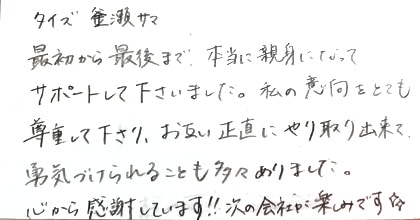 タイズ 釜瀬サマ
最初から最後まで、本当に親身になって
サポートして下さいました。私の意向をとても
尊重して下さり、お互い正直にやり取り出来て、
勇気づけられることも多々ありました。
心から感謝しています!! 次の会社が楽しみです☆